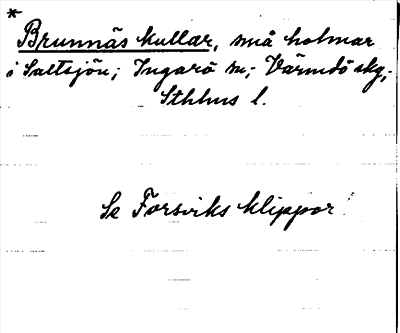 *
Brunnäs kullar, små holmar
i Saltsjön; Ingarö sn; Värmdö skg,
Sthlms l.
Se Forsviks klippor